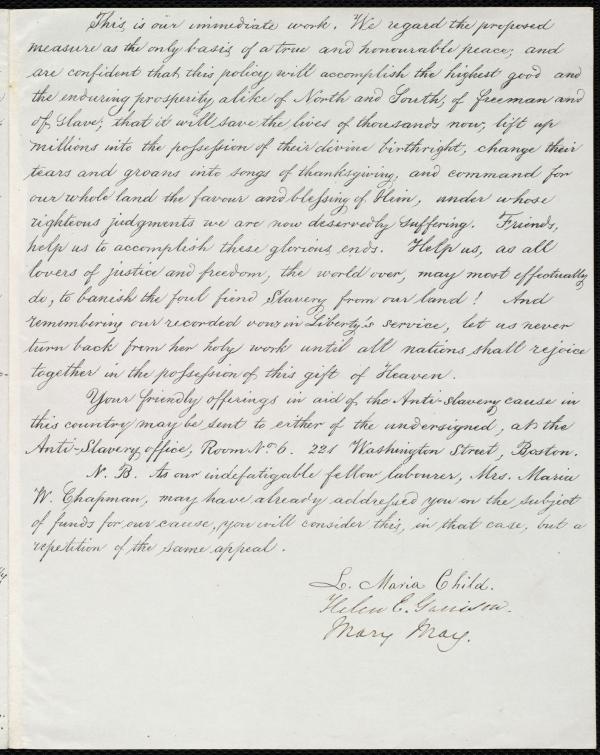 This is our immediate work. We regard the proposed
measure as the only basis of a true and honourable peace; and
are confident that this policy will accomplish the highest good and
the enduring prosperity alike of North and South, of freeman and
of slave; that it will save the lives of thousands now, lift up
millions into the possession of their divine birthright, change their
tears and groans into songs of thanksgiving, and command for
our whole land the favour and blessing of Him, under whose
righteous judgments we are now deservedly suffering. Friends,
help us to accomplish these glorious ends. Help us, as all
lovers of justice and freedom, the world over, may most effectually
do, to banish the foul fiend Slavery from our land! And
remembering our recorded vows in Liberty's service, let us never
turn back from her holy work until all nations shall rejoice
together in the possession of this gift of Heaven.
Your friendly offerings in aid of the Anti-Slavery cause in
this country may be sent to either of the undersigned, at the
Anti-Slavery office, Room No 6. 221 Washington Street, Boston.
N. B. As our indefatigable fellow labourer, Mrs. Maria
W. Chapman, may have already addressed you on the subject
of funds for our cause, you will consider this, in that case, but a
repetition of the same appeal.
L. Maria Child.
Helen E. Garrison.
Mary May.